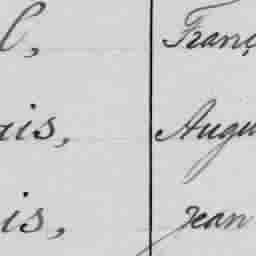 l, Franç
ais, Augu
is, Jean